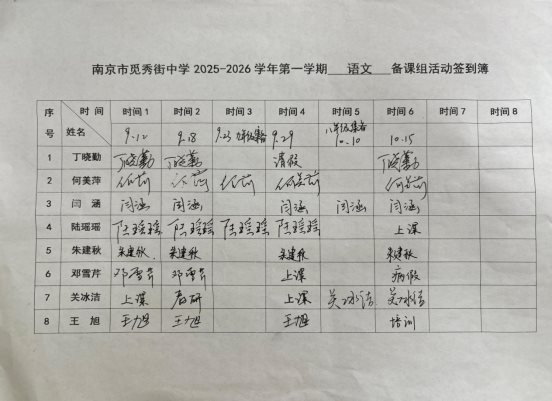 南京市觅秀街中学 2025-2026 学年第一学期 语文 备课组活动签到簿
序号 时间 姓名 时间 1 时间 2 时间 3 时间 4 时间 5 时间 6 时间 7 时间 8
9.12 9.18 9.25 九年级集备 9.29 八年级集备 10.10 10.15
1 丁晓勤 丁晓勤 丁晓勤 请假 丁晓勤
2 何美萍 何美萍
3 闫 涵 闫涵 闫涵 闫涵 闫涵 闫涵
4 陆瑶瑶 陆瑶瑶 陆瑶瑶 陆瑶瑶 陆瑶瑶 上课
5 朱建秋 朱建秋 朱建秋 朱建秋 朱建秋
6 邓雪芹 邓雪芹 邓雪芹 上课 病假
7 关冰洁 上课 教研 上课 关冰洁 关冰洁
8 王 旭 王旭 王旭 王旭 培训